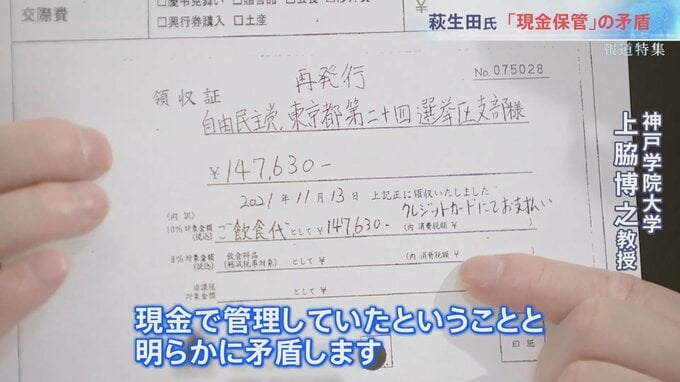 交際費
□興行券購入 □土産
萩生田氏「現金保管」の矛盾
報道特集
再発行
No.075028
領収証
自由民主党 東京都第二十四選挙区支部様
¥147,630-
2021年11月13日 上記正に領収いたしました
(内訳)
クレジットカードにてお支払い
10%対象金額(税込) ご飲食代として¥147,630- (内 消費税額 )
8%対象金額(税込) 飲食料品(軽減税率対象) として¥ (内 消費税額 ¥
として¥
印紙
神戸学院大学
上脇博之教授
現金で管理していたということと
明らかに矛盾します